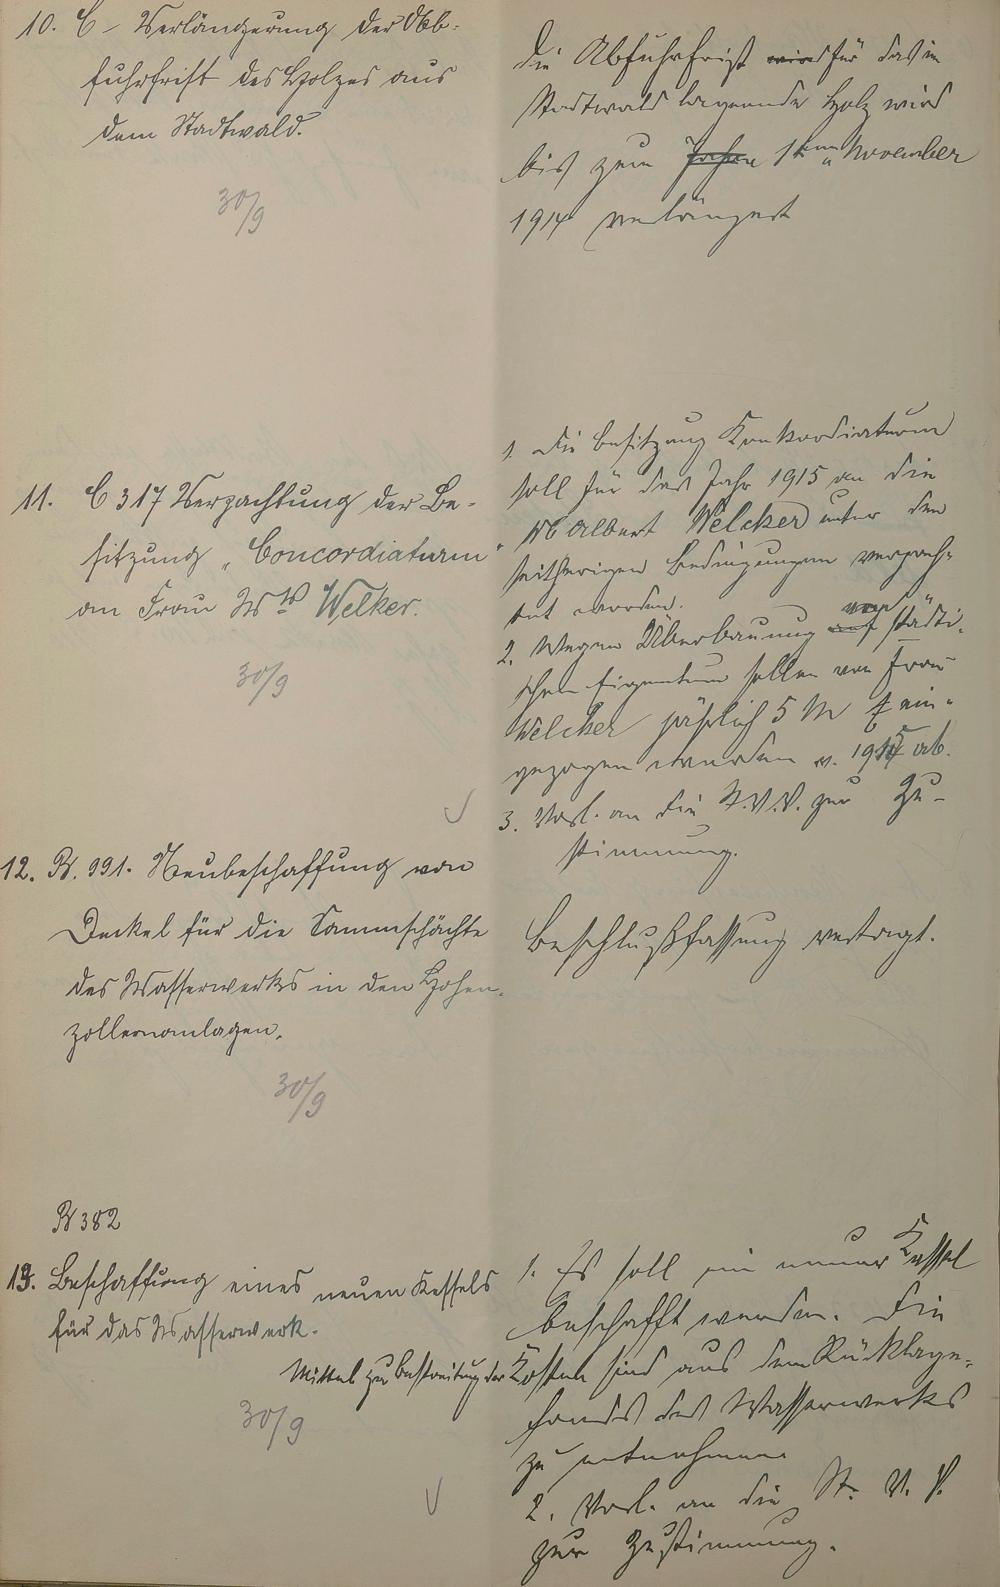 10. C – Verlängerung der Ab-
fuhrfrist des Holzes aus
dem Stadtwald.
30/9
Die Abfuhrfrist wird für das im
Stadtwald lagernde Holz wird
bis zum 1ten November
1914 verlängert
11. C 317 Verpachtung der Be-
sitzung „Concordiaturm"
an Frau Welker.
30/9
1. Die Besitzung Konkordiaturm
soll für das Jahr 1915 an die
Albert Welcker unter den
seitherigen Bedingungen verpach-
tet werden.
2. Wegen Überbauung auf von städti-
schem Eigentum sollen von Frau
Welcker jährlich 5 M ein-
gezogen werden v. 1915 ab.
3. Vorl. an die St.V.V. zur Zu-
stimmung.
12. B. 991. Neubeschaffung von
Deckel für die Sammschächte
des Wasserwerks in den Hohen-
zollernanlagen.
30/9
Beschlußfassung vertagt.
B 382
13. Beschaffung eines neuen Kessels
für das Wasserwerk.
30/9
1. Es soll ein neuer Kessel
beschafft werden. Die
Mittel zur Bestreitung der Kosten sind aus dem Rücklage-
fonds des Wasserwerks
zu entnehmen
2. Vorl. an die St. V. V.
zur Zustimmung.